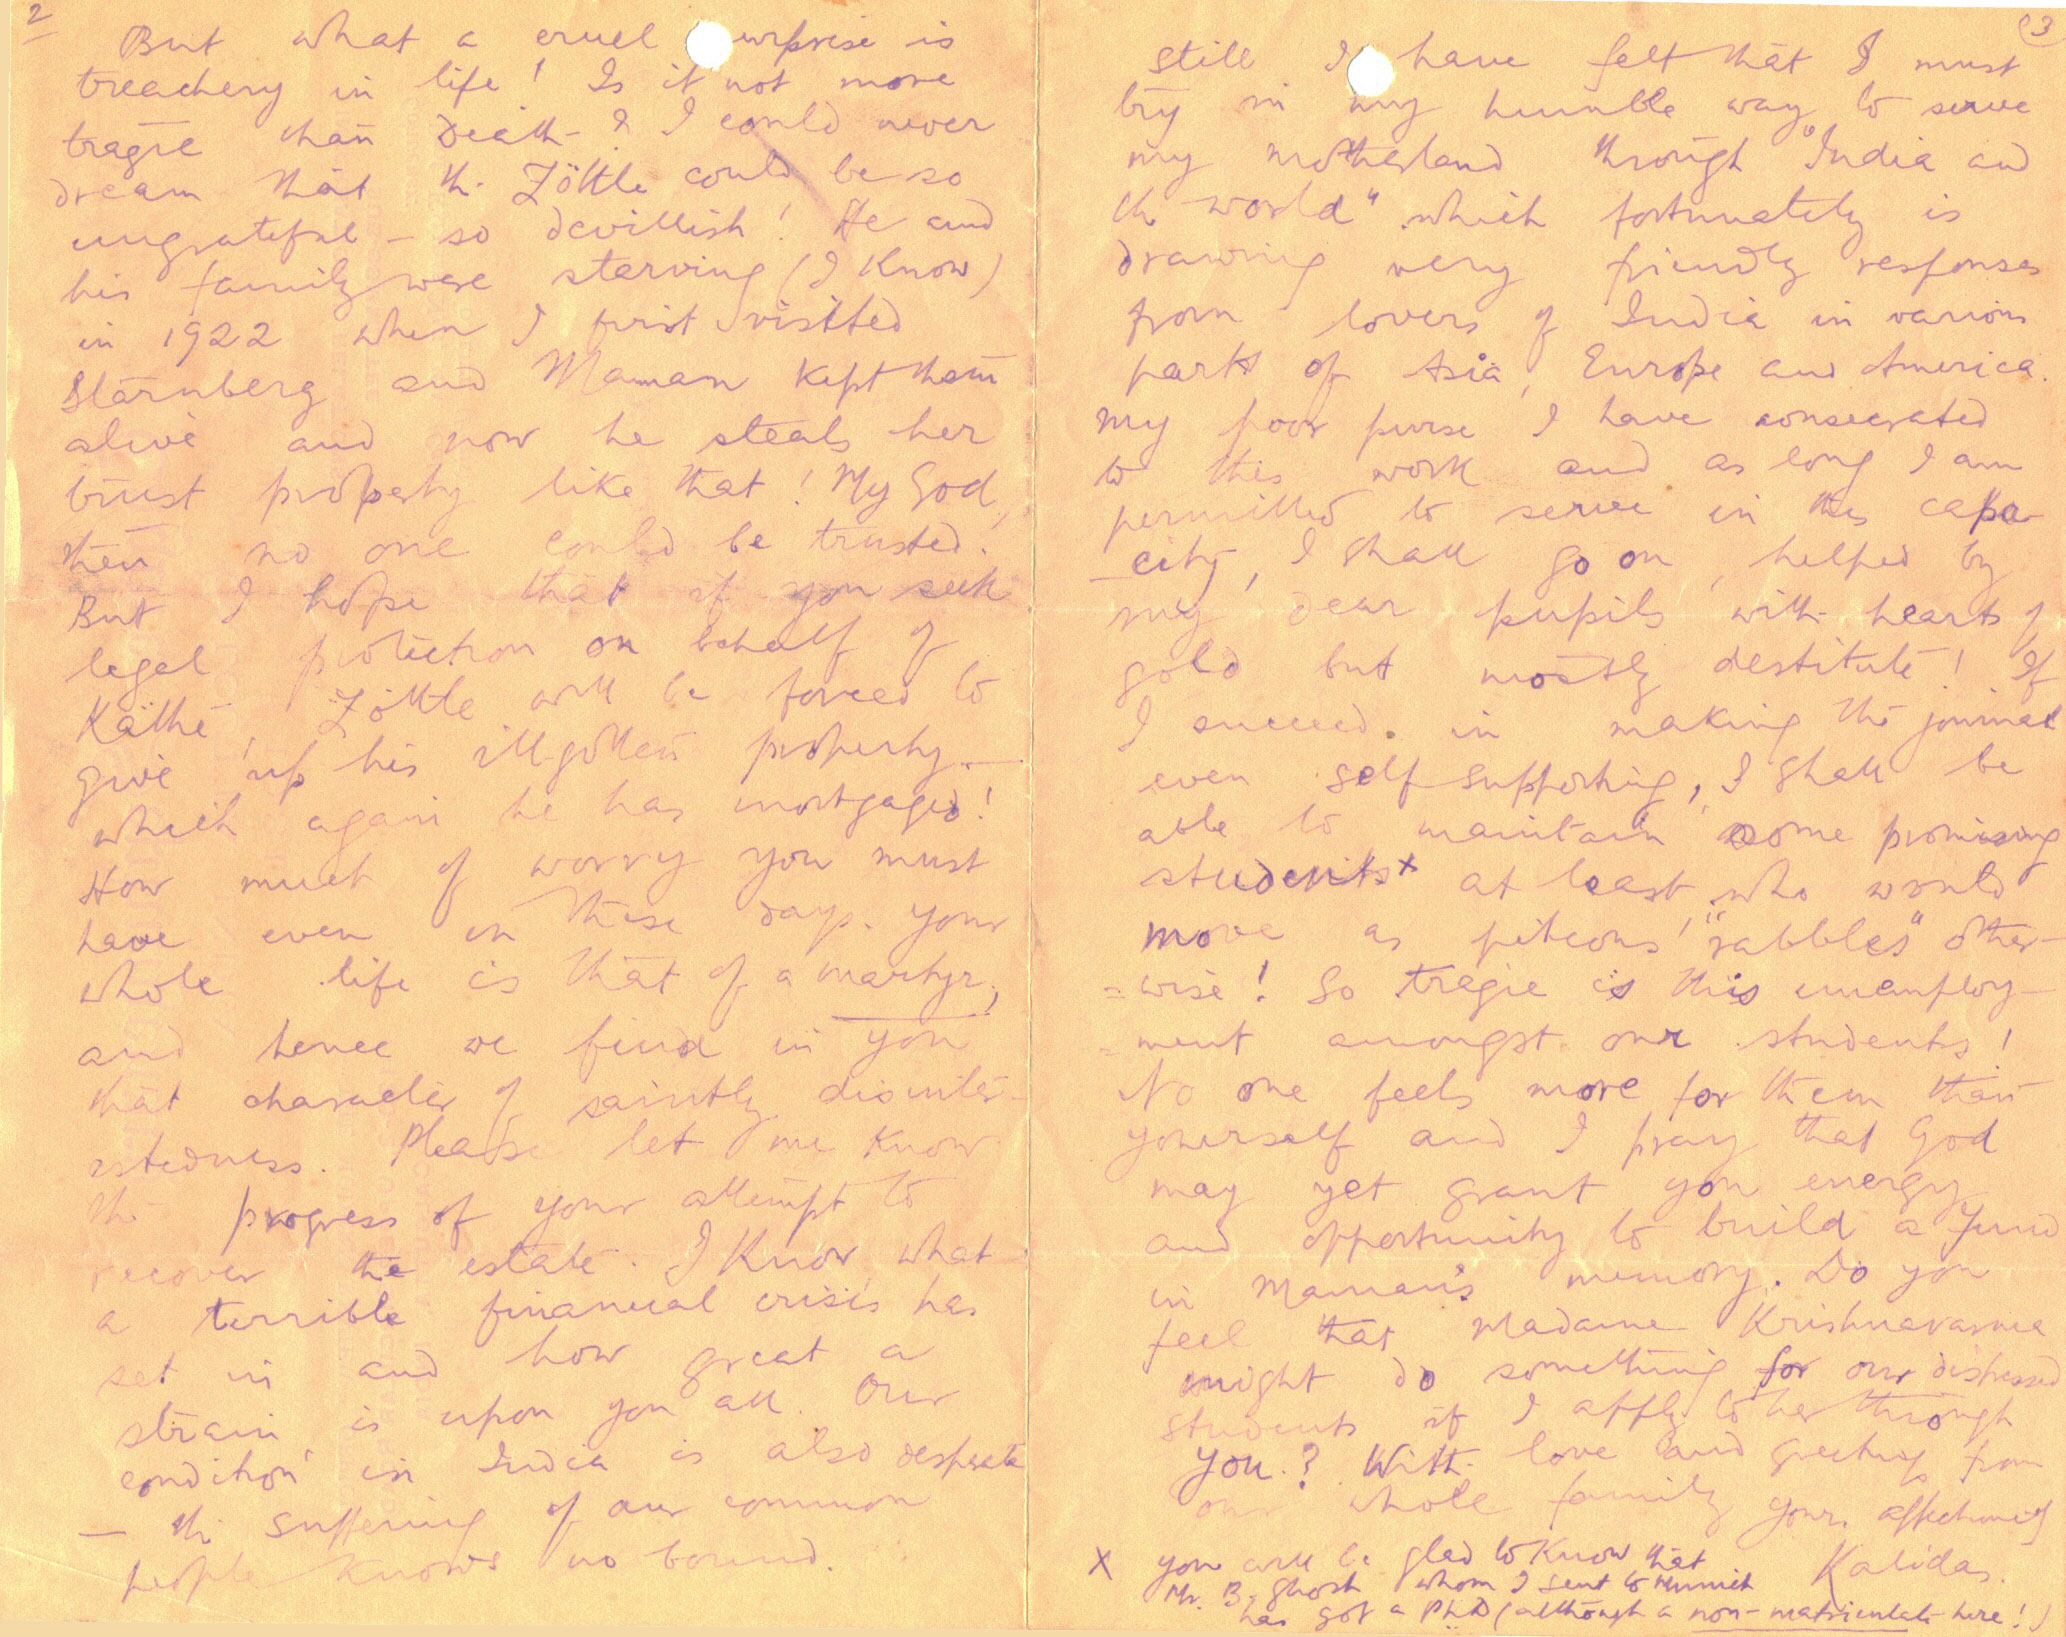 2
But what a cruel urprise is
treachery in life! Is it not more
tragic than death? I could never
dream that the Zöttle could be so
ungrateful - so devillish! He and
his family were starving (I know)
in 1922 when I first visited
Starnberg and Maman kept them
alive and now he steals her
trust property like that! My God,
then no one could be trusted.
But I hope that if you seek
legal protection on behalf of
Käthe, Zöttle will be forced to
give up his ill-gotten property -
which again he has mortgaged!
How much of worry you must
have even in these days. Your
whole life is that of a martyr,
and hence we find in you
that character of saintly disinter-
estedness. Please let me know
the progress of your attempt to
recover the estate. I know what
a terrible financial crisis has
set in and how great a
strain is upon you all. Our
condition in India is also desperate
- the suffering of our common
people knows no bound.
3
Still I have felt that I must
try in my humble way to serve
my motherland through "India and
the world" which fortunately is
drawing very friendly responses
from lovers of India in various
parts of Asia, Europe and America.
My poor purse I have consecrated
to this work and as long I am
permitted to serve in this capa-
-city, I shall go on, helped by
my dear pupils with hearts of
gold but mostly destitute! If
I succeed in making the journal
even self supporting, I shall be
able to maintain some promising
students x at least, who would
move as piteous "rabbles" other-
=wise! So tragic is this unemploy-
=ment amongst our students!
No one feels more for them than
yourself and I pray that God
may yet grant you energy
and opportunity to build a fund
in Maman's memory. Do you
feel that Madame Krishnavarma
might do something for our distressed
students if I apply to her through
you? With love and greetings from
our whole family yours affectionately
Kalidas.
X you will be glad to know that
Mr. B. Ghosh whom I sent to Munich
has got a Ph.D (although a non-matriculate here!)